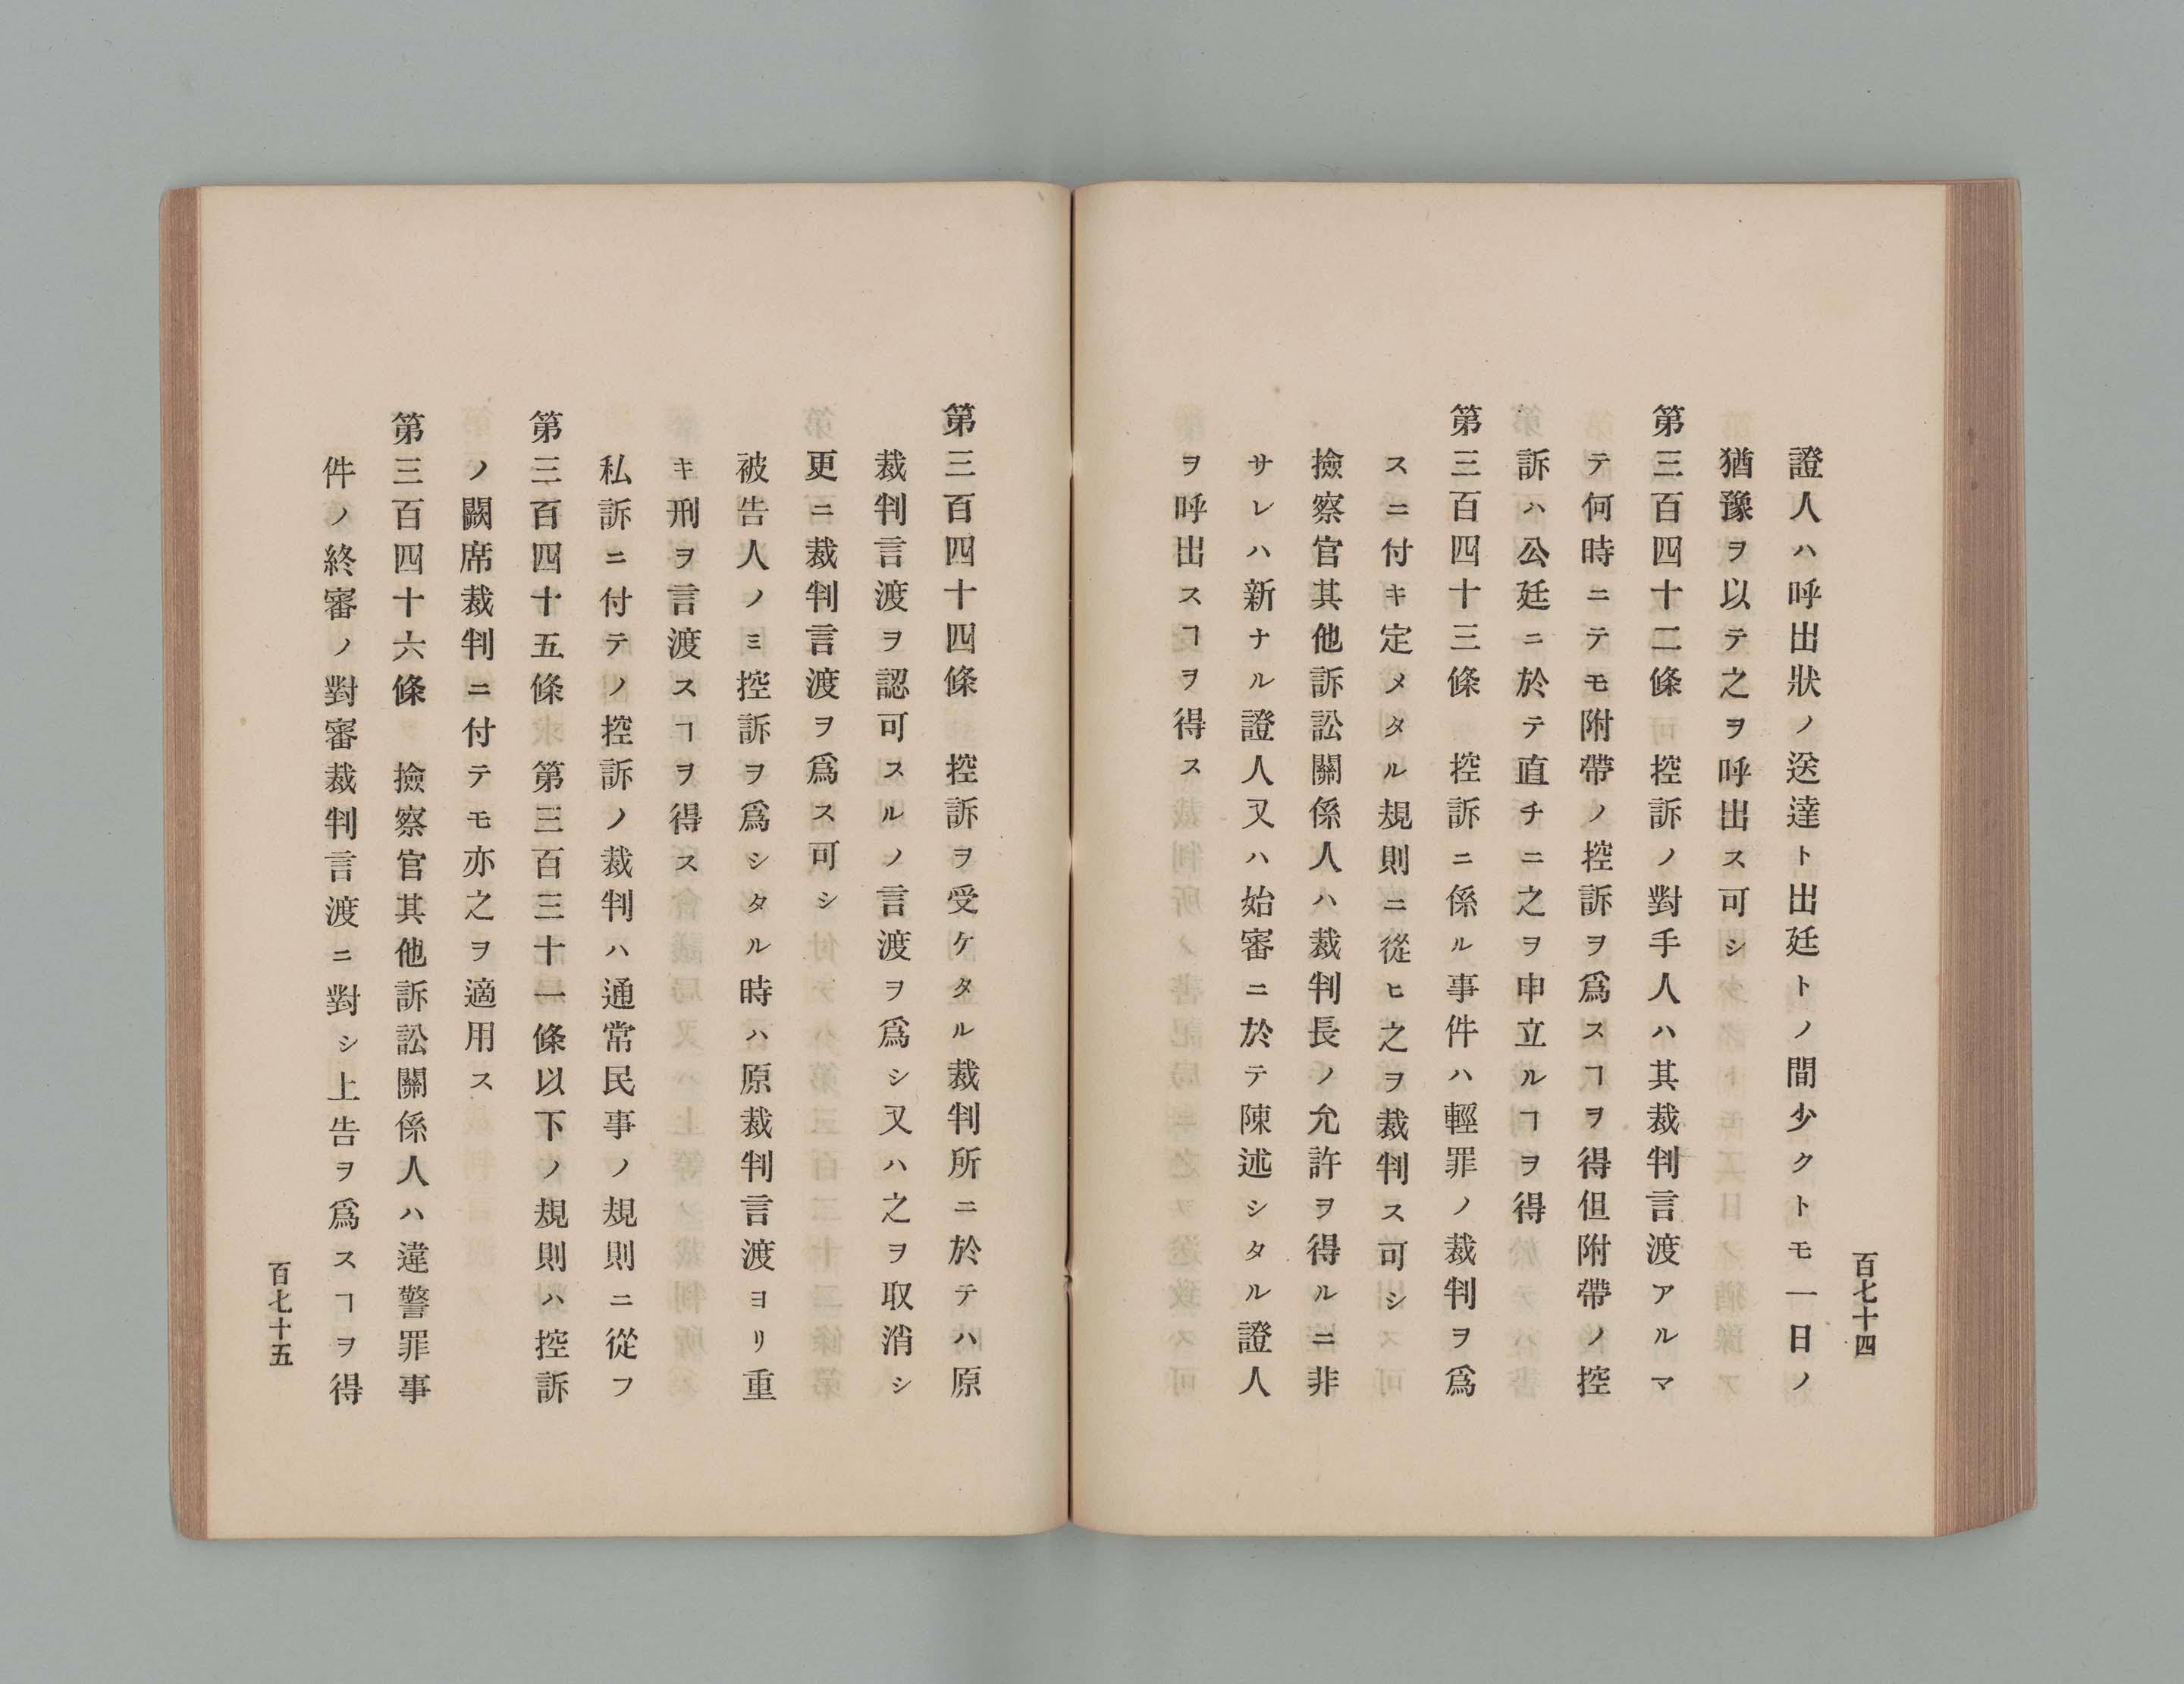 百七十四
證人ハ呼出狀ノ送達ト出廷トノ間少クトモ一日ノ
猶豫ヲ以テ之ヲ呼出ス可シ
第三百四十二條　控訴ノ對手人ハ其裁判言渡アルマ
テ何時ニテモ附帶ノ控訴ヲ爲スヿヲ得但附帶ノ控
訴ハ公廷ニ於テ直チニ之ヲ申立ルヿヲ得
第三百四十三條　控訴ニ係ル事件ハ輕罪ノ裁判ヲ爲
スニ付キ定メタル規則ニ從ヒ之ヲ裁判ス可シ
撿察官其他訴訟關係人ハ裁判長ノ允許ヲ得ルニ非
サレハ新ナル證人又ハ始審ニ於テ陳述シタル證人
ヲ呼出スヿヲ得ス
第三百四十四條　控訴ヲ受ケタル裁判所ニ於テハ原
裁判言渡ヲ認可スルノ言渡ヲ爲シ又ハ之ヲ取消シ
更ニ裁判言渡ヲ爲ス可シ
被告人ノミ控訴ヲ爲シタル時ハ原裁判言渡ヨリ重
キ刑ヲ言渡スヿヲ得ス
私訴ニ付テノ控訴ノ裁判ハ通常民事ノ規則ニ從フ
第三百四十五條　第三百三十一條以下ノ規則ハ控訴
ノ闕席裁判ニ付テモ亦之ヲ適用ス
第三百四十六條　撿察官其他訴訟關係人ハ違警罪事
件ノ終審ノ對審裁判言渡ニ對シ上告ヲ爲スヿヲ得
百七十五